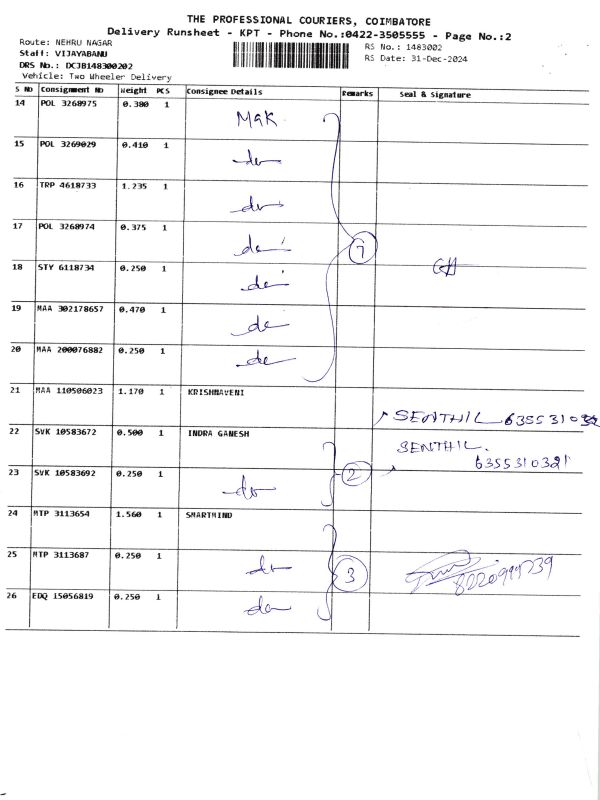 THE PROFESSIONAL COURIERS, COIMBATORE
Delivery Runsheet - KPT - Phone No.:0422-3505555 - Page No.:2
Route: NEHRU NAGAR
Staff: VIJAYABANU
DRS No.: DCJB148300202
Vehicle: Two Wheeler Delivery
RS No.: 1483002
RS Date: 31-Dec-2024
S No Consignment No Weight PCS Consignee Details Remarks Seal & Signature
14 POL 3268975 0.380 1 Mak
15 POL 3269029 0.410 1 do
16 TRP 4618733 1.235 1 do
17 POL 3268974 0.375 1 do 7
18 STY 6118734 0.250 1 do
19 MAA 302178657 0.470 1 do
20 MAA 200076882 0.250 1 do
21 MAA 110506023 1.170 1 KRISHNAVENI
SENTHIL
22 SVK 10583672 0.500 1 INDRA GANESH SENTHIL.
6355310321
23 SVK 10583692 0.250 1 do 2
24 MTP 3113654 1.560 1 SMARTMIND
25 MTP 3113687 0.250 1 do 3
26 EDQ 15056819 0.250 1 do